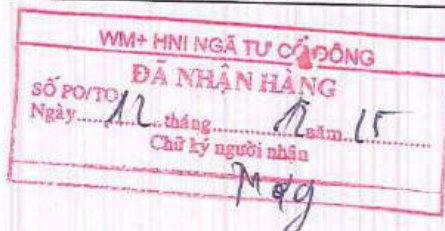 WM+ HNI NGÃ TƯ CỔ ĐÔNG
ĐÃ NHẬN HÀNG
SỐ PO/TO
Ngày 12 tháng 12 năm 25
Chữ ký người nhận